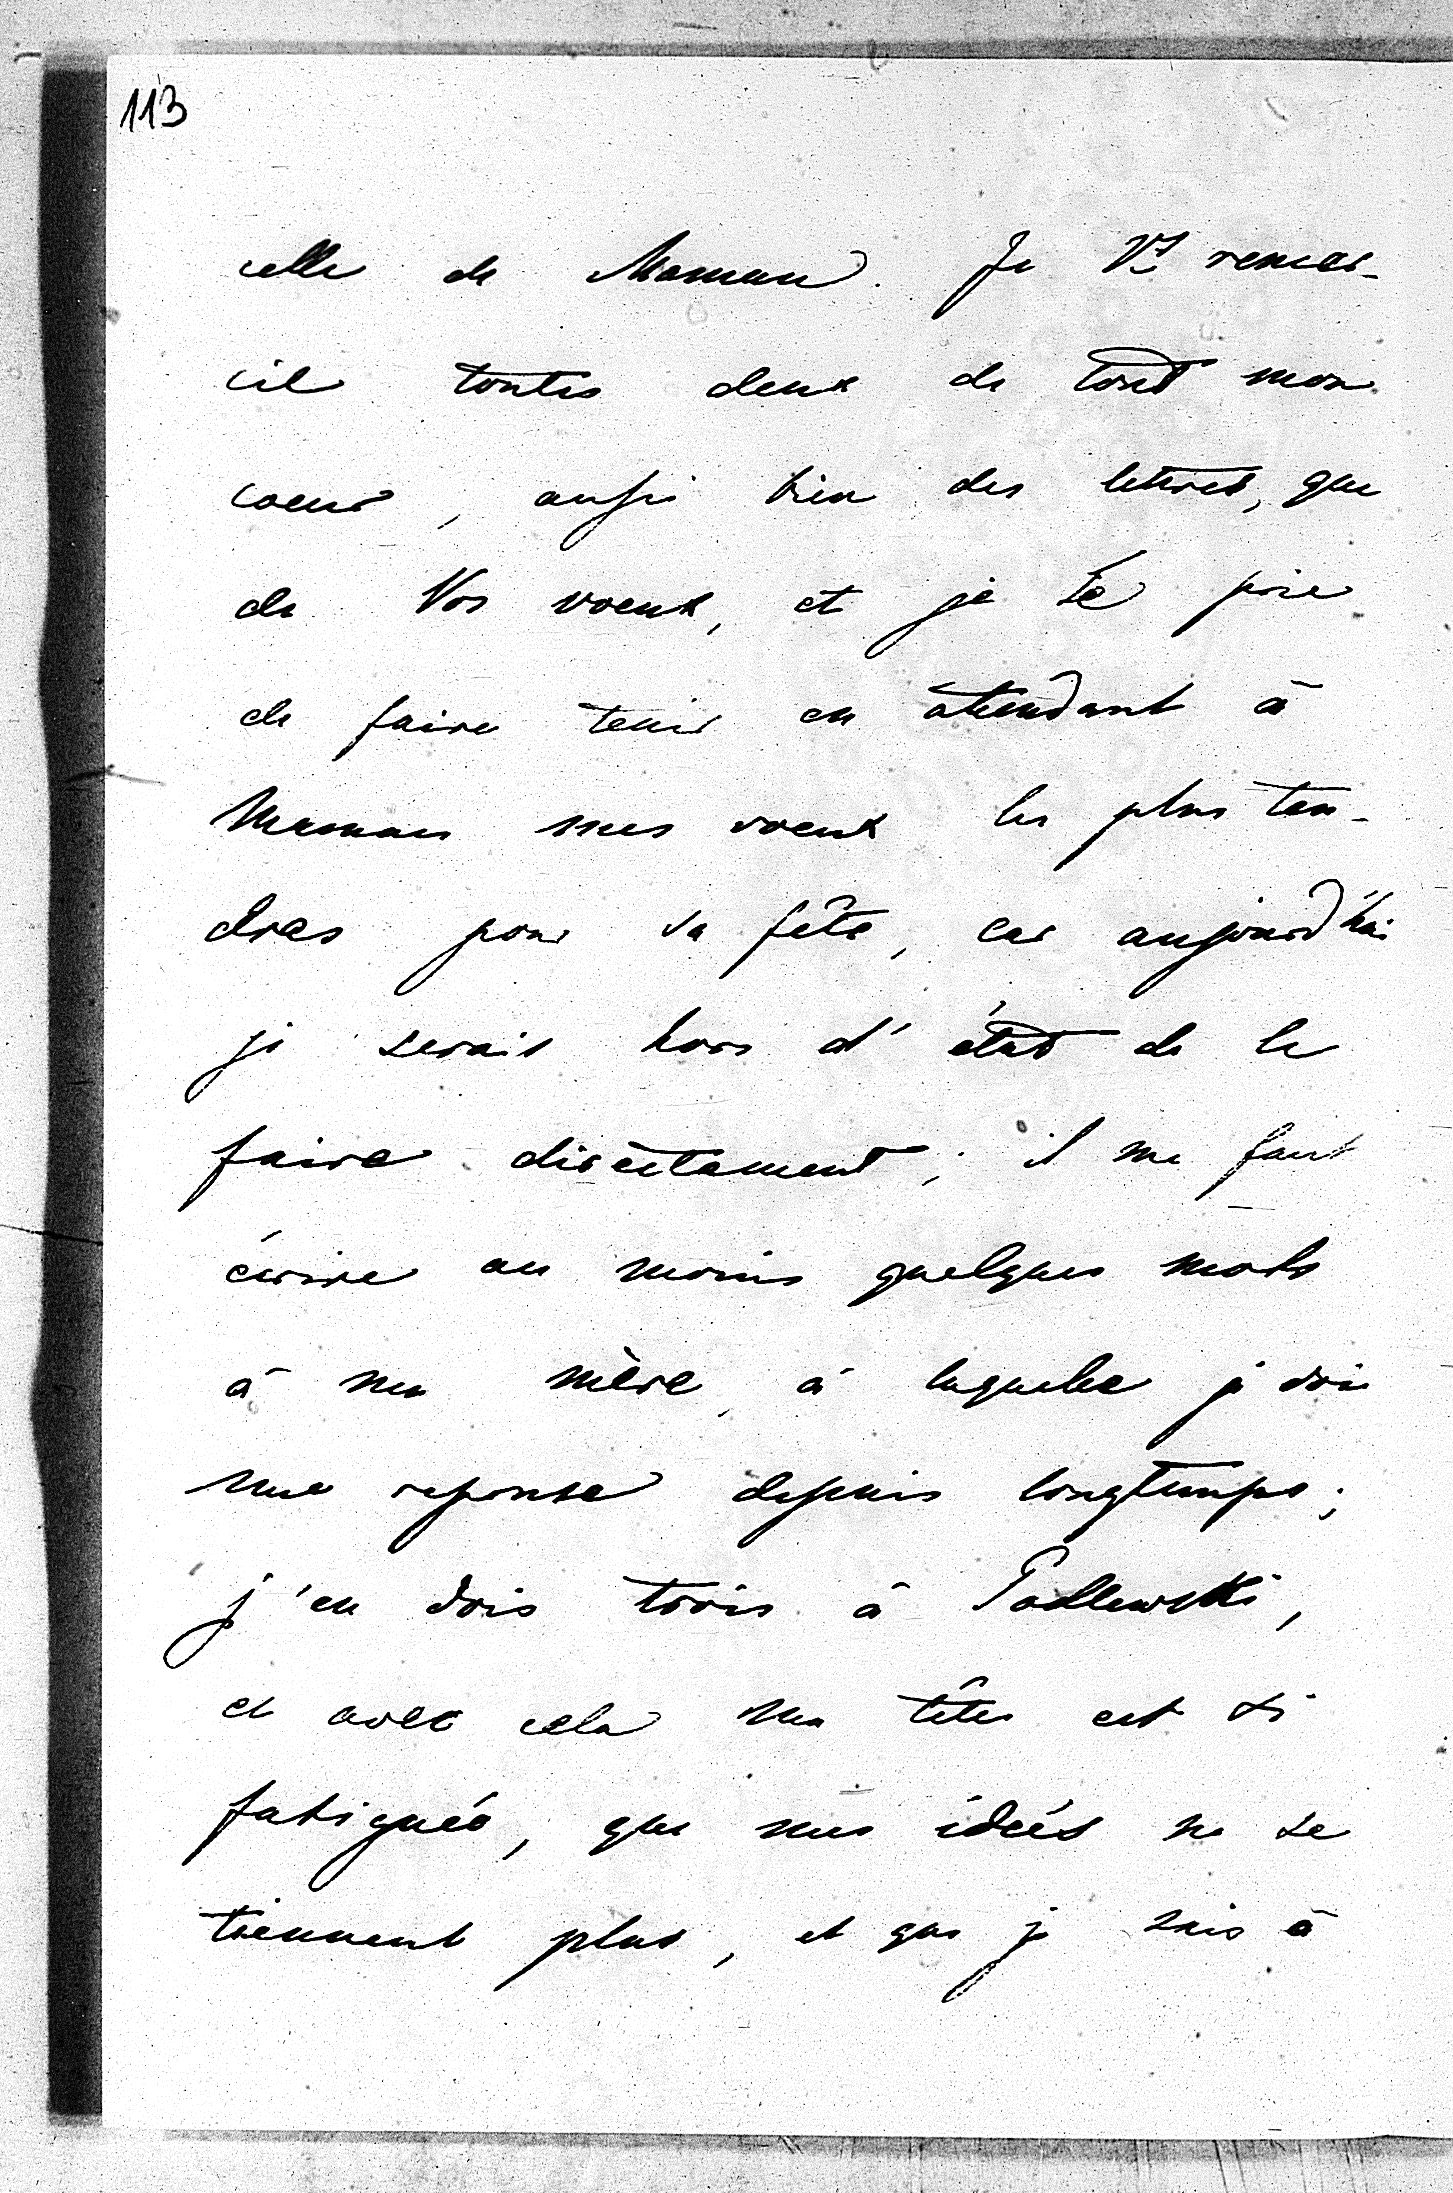 113
celle de Maman. Je Vs remer-
cie toutes deux de tout mon
coeur, aussi bien des lettres, que
de Vos voeux, et je te prie
de faire tenir en attendant à
Maman mes voeux les plus ten-
dres pour sa fête, car aujourd'hui
je serais hors d'état de le
faire dirèctement; il me faut
écrire au moins quelques mots
à ma mère, à laquelle je dois
une reponse depuis longtemps;
j'en dois trois à Padlewski,
et avec cela ma tête est si
fatiguée, que mes idées ne se
tiennent plus, et que je suis à